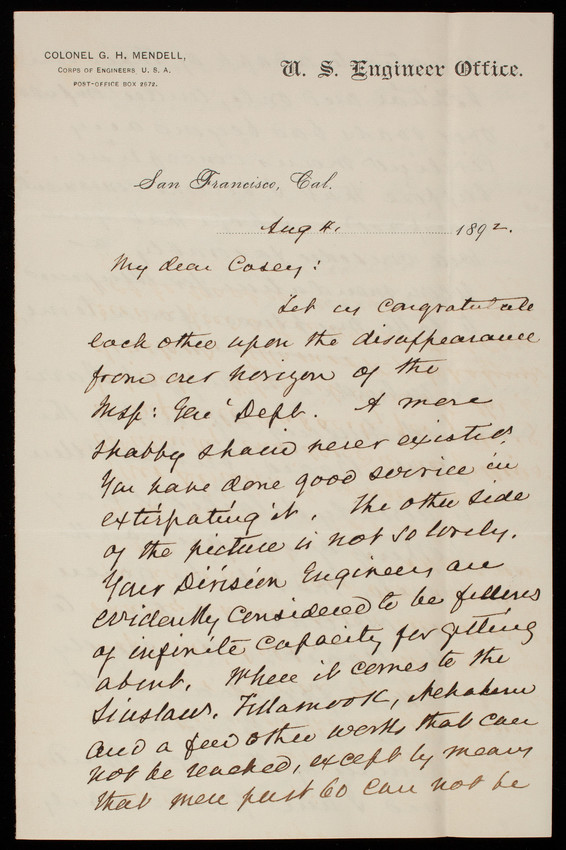 COLONEL G. H. MENDELL,
CORPS OF ENGINEERS, U. S. A.
POST-OFFICE BOX 2572.
U. S. Engineer Office.
San Francisco, Cal.
Aug 4. 1892.
My dear Casey:
Let us congratulate
each other upon the disappearance
from our horizon of the
Insp: Gen' Dept. A more
shabby sham never existed.
You have done good service in
extirpating it. The other side
of the picture is not so lovely.
Your Division Engineers are
evidently considered to be fellows
of infinite capacity for getting
about. Where it comes to the
Siuslaw, Tillamook, Nehalem
and a few other works that can
not be reached, except by means
that men past 60 can not be